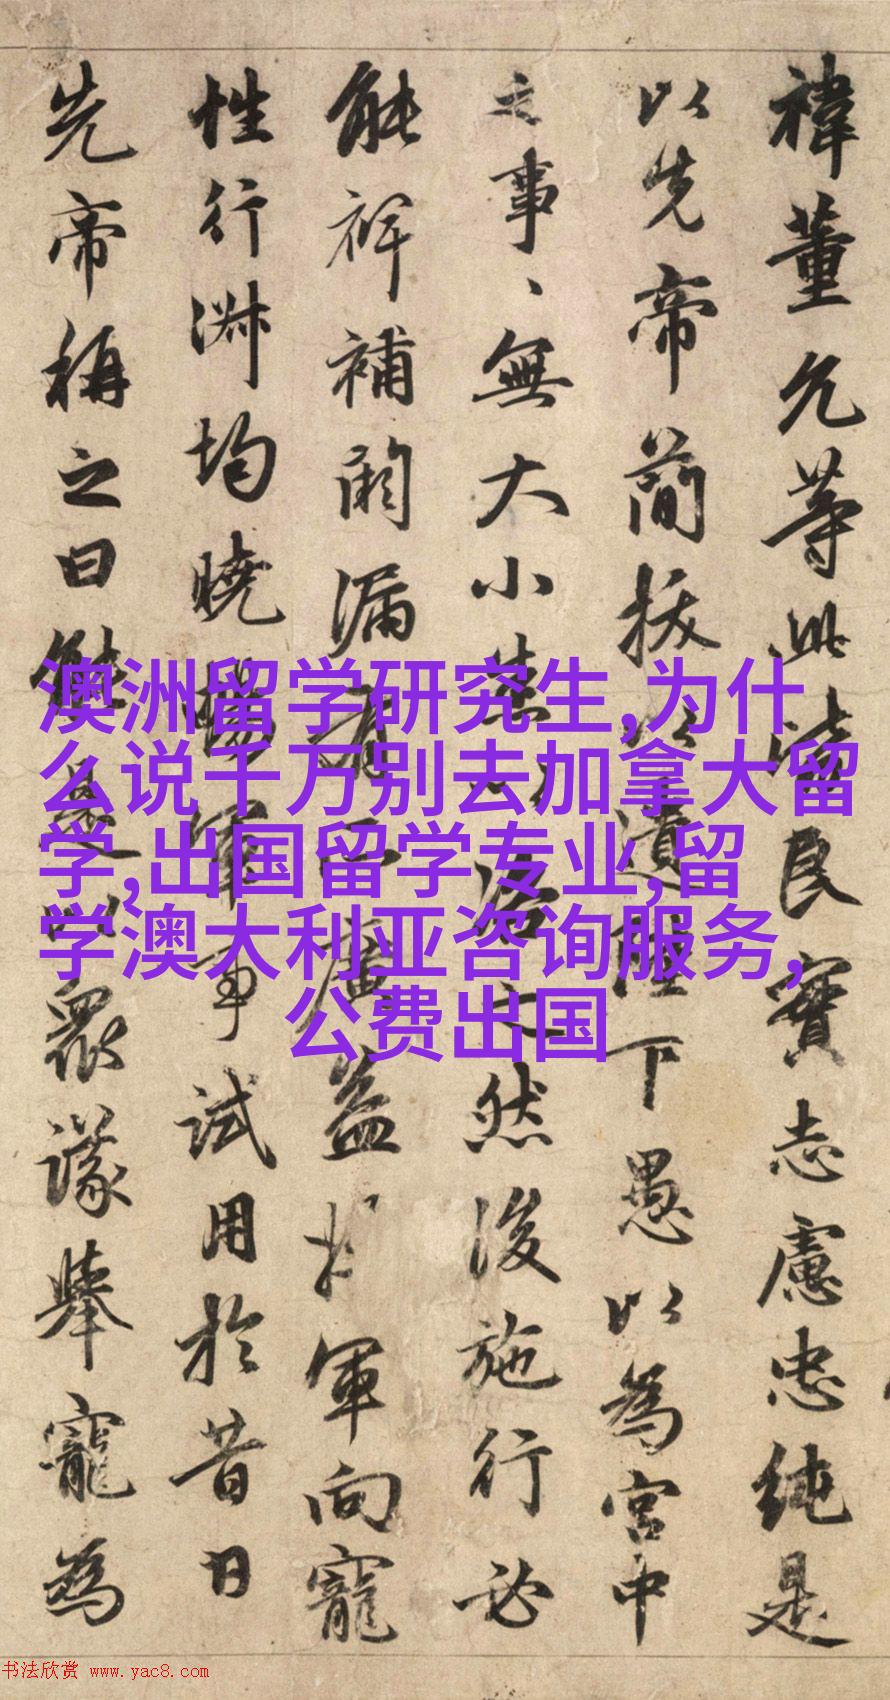 禕董允等此皆良實志慮忠純是
以先帝簡拔以遺陛下愚以為宮中
之事、無大小悉以咨之然後施行必
能裨補闕漏有所廣益將軍向寵
性行淑均曉暢軍事試用於昔日
先帝稱之曰能是以衆議舉寵為
澳洲留学研究生,为什
么说千万别去加拿大留
学,出国留学专业,留
学澳大利亚咨询服务,
公费出国
书法欣赏 www.yac8.com